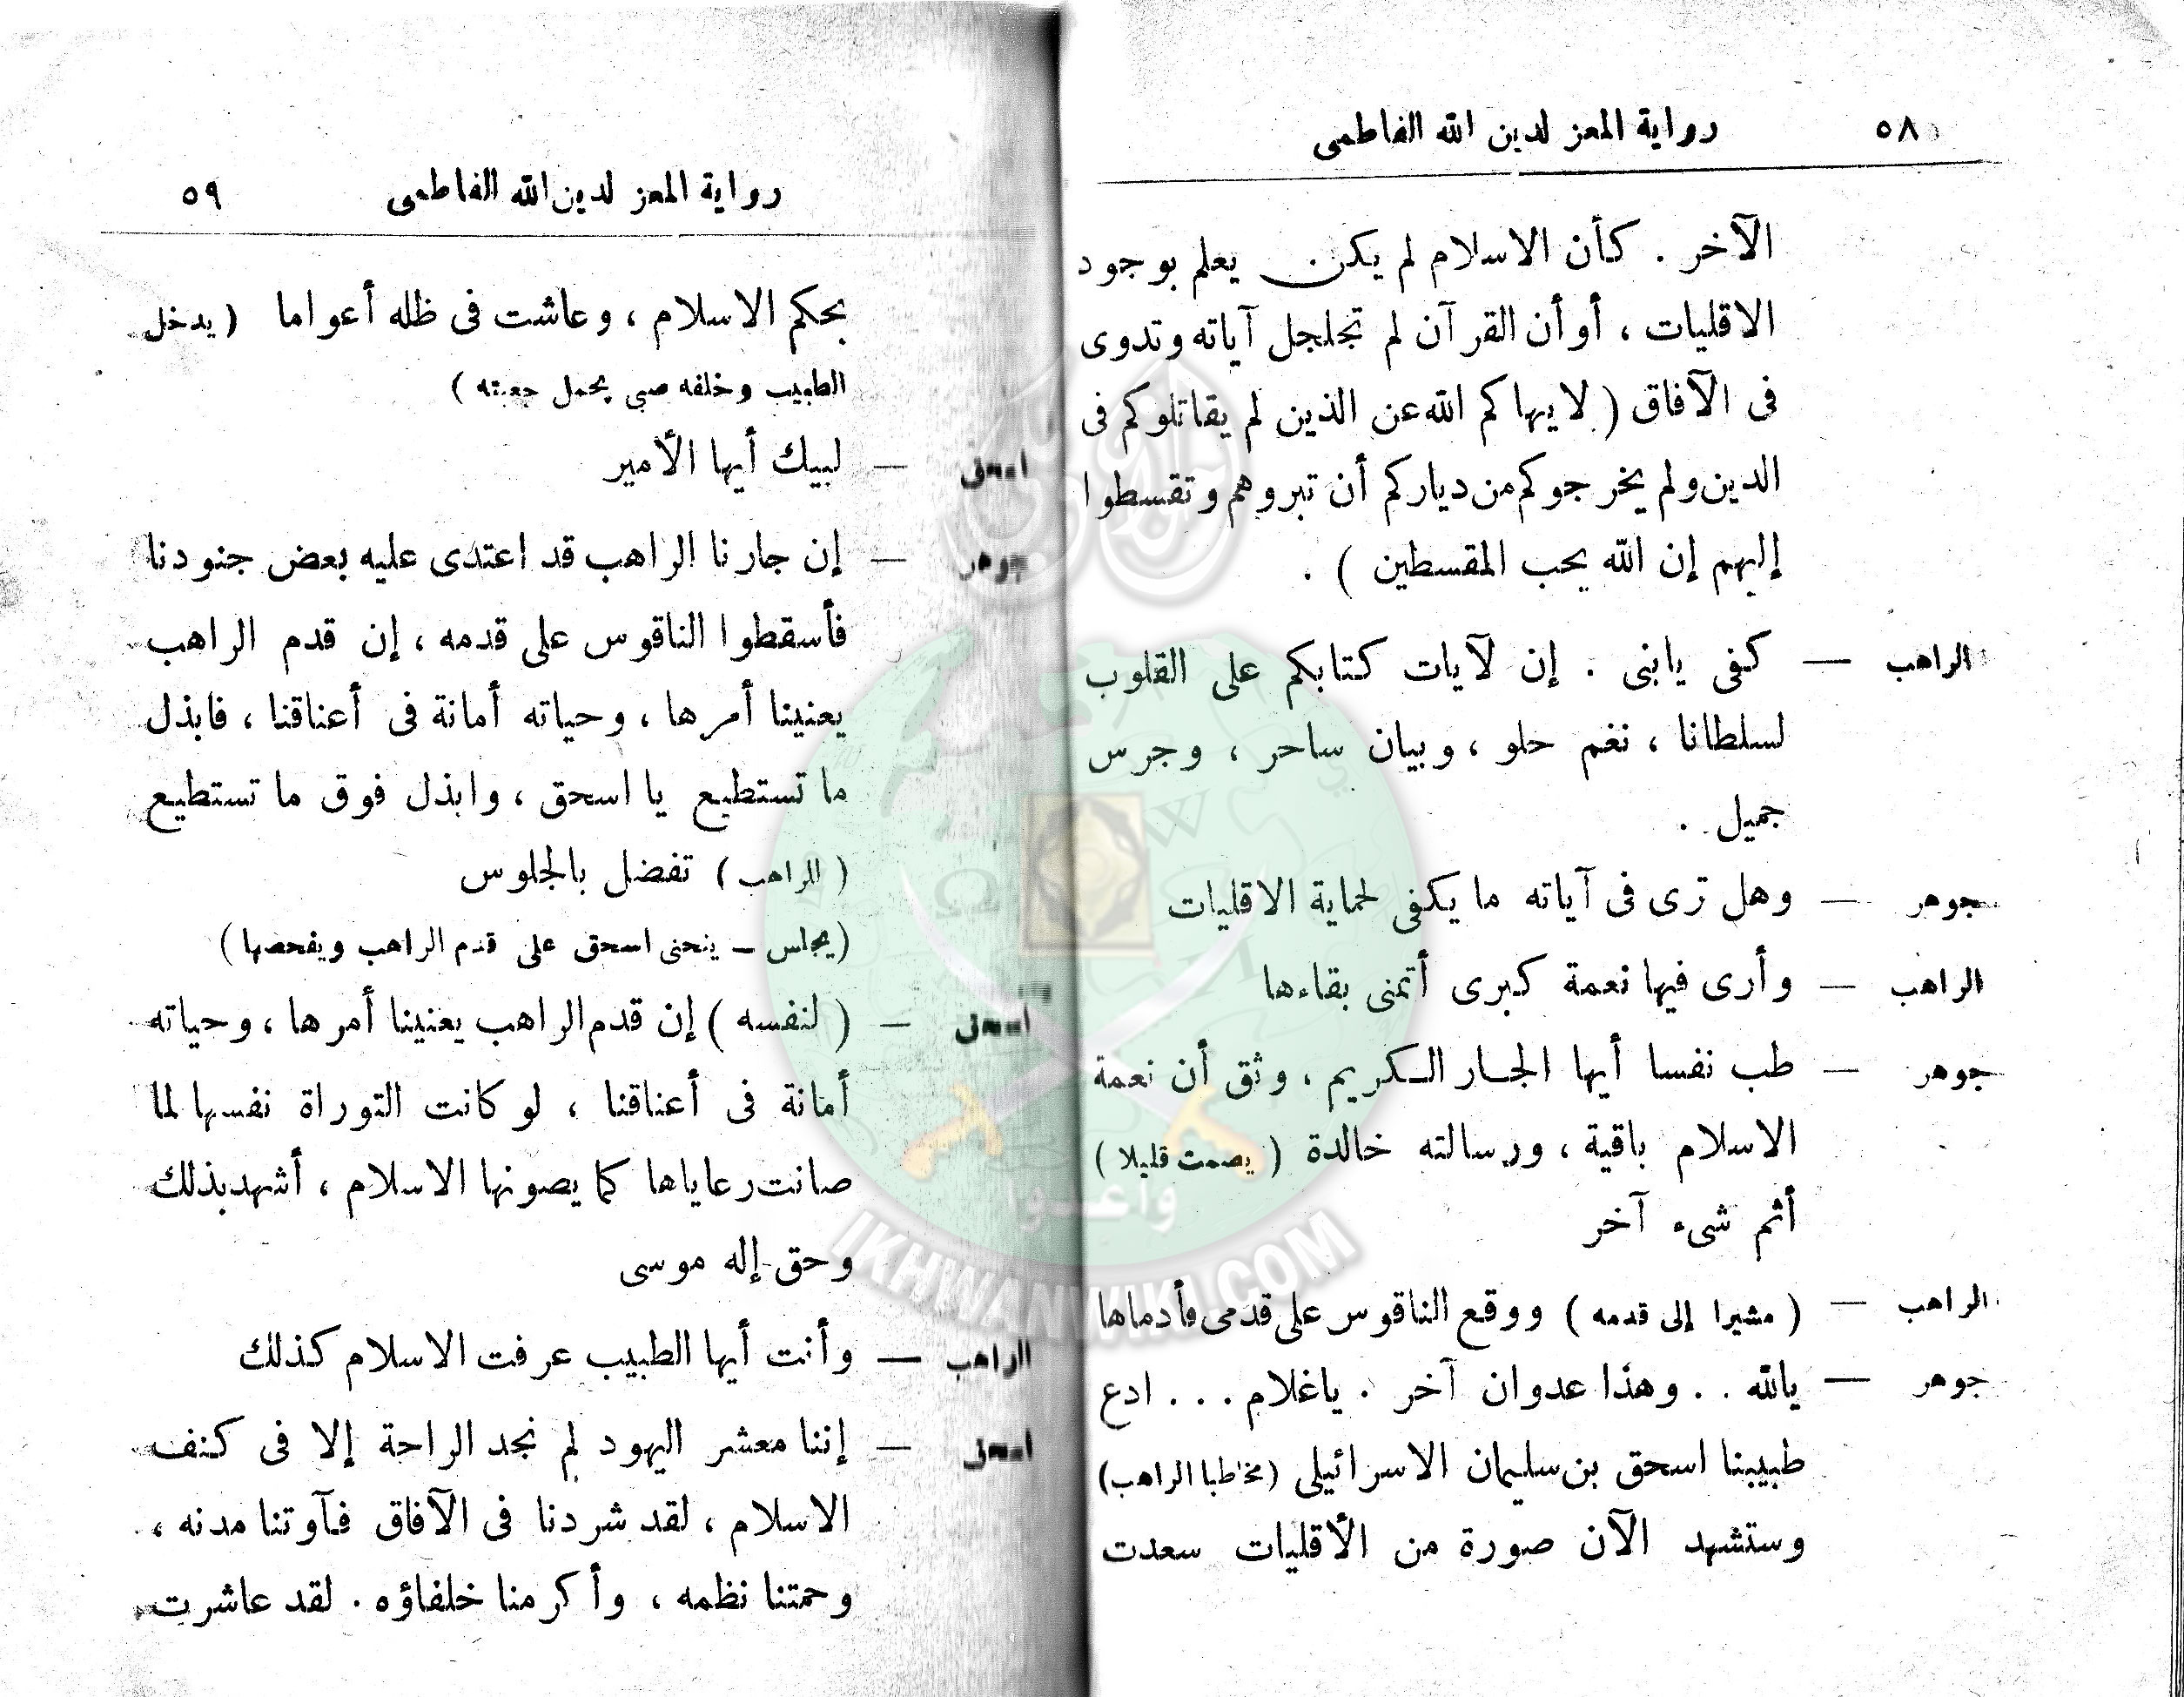 ٥٨ رواية المعز لدين الله الفاطمى
الآخر . كأن الاسلام لم يكن يعلم بوجود
الاقليات ، أو أن القرآن لم تجلجل آياته وتدوى
فى الآفاق ( لا ينهاكم الله عن الذين لم يقاتلوكم فى
الدين ولم يخرجوكم من دياركم أن تبروهم وتقسطوا
إليهم إن الله يحب المقسطين ) .
الراهب — كفى يابنى . إن لآيات كتابكم على القلوب
لسلطانا ، نغم حلو ، وبيان ساحر ، وجرس
جميل .
جوهر — وهل ترى فى آياته ما يكفى لحماية الاقليات
الراهب — وأرى فيها نعمة كبرى أتمنى بقاءها
جوهر — طب نفسا أيها الجار الكريم ، وثق أن نعمة
الاسلام باقية ، ورسالته خالدة ( يصمت قليلا )
أثم شىء آخر
الراهب — ( مشيرا إلى قدمه ) ووقع الناقوس على قدمى فأدماها
جوهر — يالله . . وهذا عدوان آخر . ياغلام . . . ادع
طبيبنا اسحق بن سليمان الاسرائيلى (مخاطبا الراهب)
وستشهد الآن صورة من الأقليات سعدت
رواية المعز لدين الله الفاطمى ٥٩
بحكم الاسلام ، وعاشت فى ظله أعواما ( يدخل
الطبيب وخلفه صبى يحمل جعبته )
اسحق — لبيك أيها الأمير
جوهر — إن جارنا الراهب قد اعتدى عليه بعض جنودنا
فأسقطوا الناقوس على قدمه ، إن قدم الراهب
يعنينا أمرها ، وحياته أمانة فى أعناقنا ، فابذل
ما تستطيع يا اسحق ، وابذل فوق ما تستطيع
( للراهب ) تفضل بالجلوس
(يجلس — ينحنى اسحق على قدم الراهب ويفحصها )
اسحق — ( لنفسه ) إن قدم الراهب يعنينا أمرها ، وحياته
أمانة فى أعناقنا ، لو كانت التوراة نفسها لما
صانت رعاياها كما يصونها الاسلام ، أشهد بذلك
وحق إله موسى
الراهب — وأنت أيها الطبيب عرفت الاسلام كذلك
اسحق — إننا معشر اليهود لم نجد الراحة إلا فى كنف
الاسلام ، لقد شردنا فى الآفاق فآوتنا مدنه ،
وحمتنا نظمه ، وأكرمنا خلفاؤه . لقد عاشرت
وأعدوا
IKHWANWIKI.COM